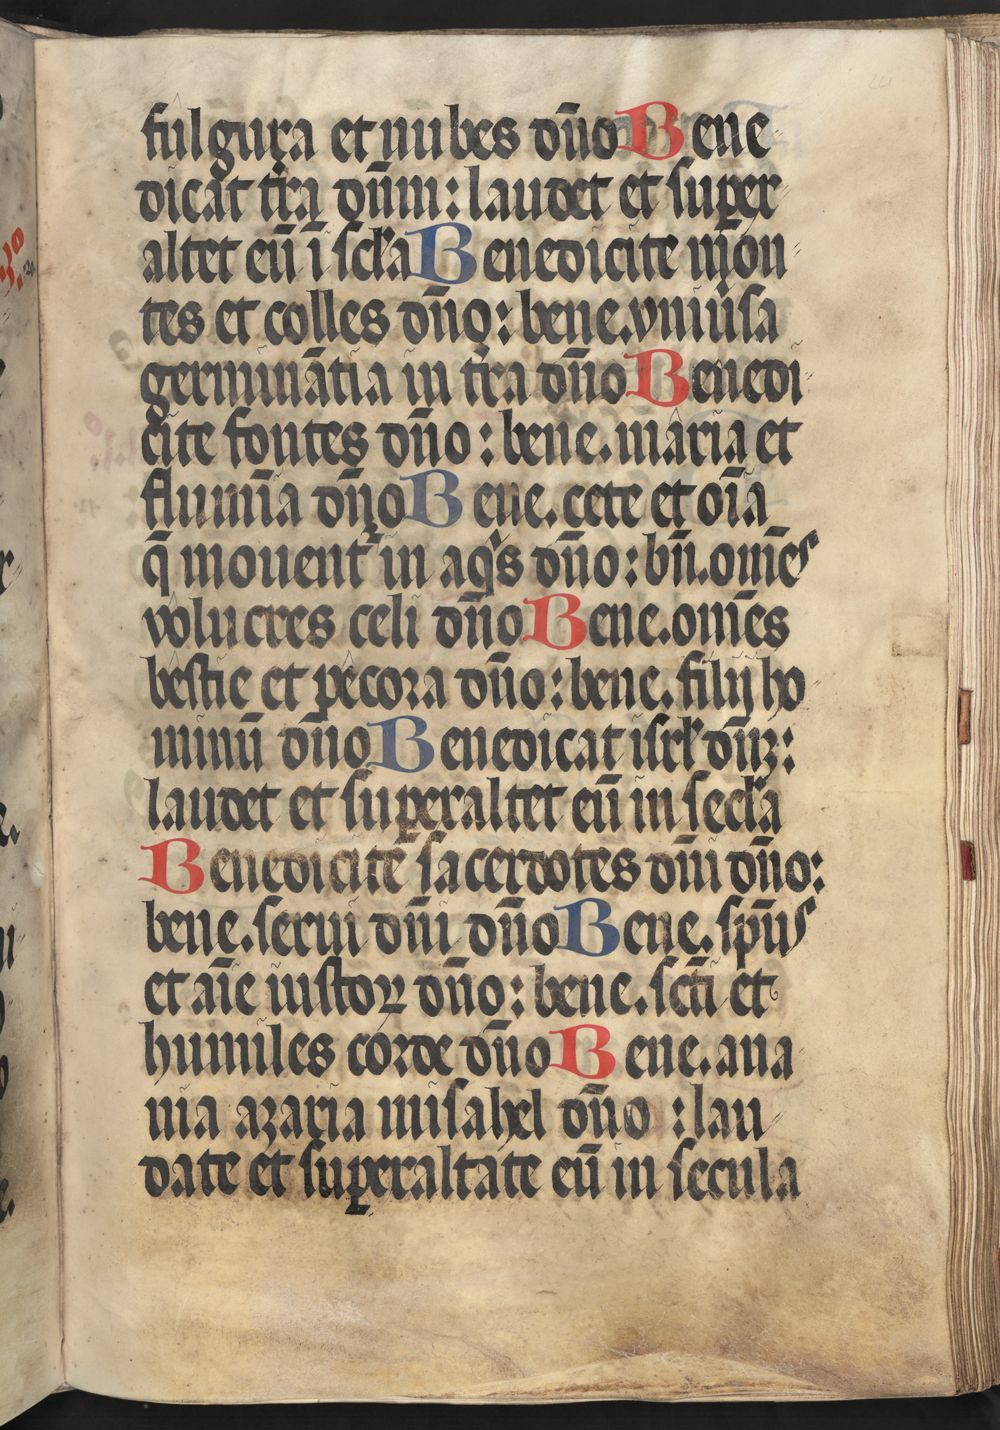 fulgura et nubes dn̄o Bene
dicat tr̄a dn̄m : laudet et super
altet eū i scl̄a Benedicite mon
tes et colles dn̄o : bene. vniūsa
germinātia in tr̄a dn̄o Benedi
cite fontes dn̄o : bene. maria et
flumīa dn̄o Bene. cete et oīa
q̄ mouent᷑ in aq̄s dn̄o : bn̄. om̄es
volucres celi dn̄o Bene. om̄es
bestie et pecora dn̄o : bene. filij ho
minū dn̄o Benedicat isrl̄ dn̄ꝫ :
laudet et superaltet eū in secl̄a
Benedicite sacerdotes dn̄i dn̄o :
bene. serui dn̄i dn̄o Bene. spūs
et aīe iustoꝝ dn̄o : bene. sct̄i et
humiles corde dn̄o Bene. ana
nia azaria misahel dn̄o : lau
date et superaltate eū in secula